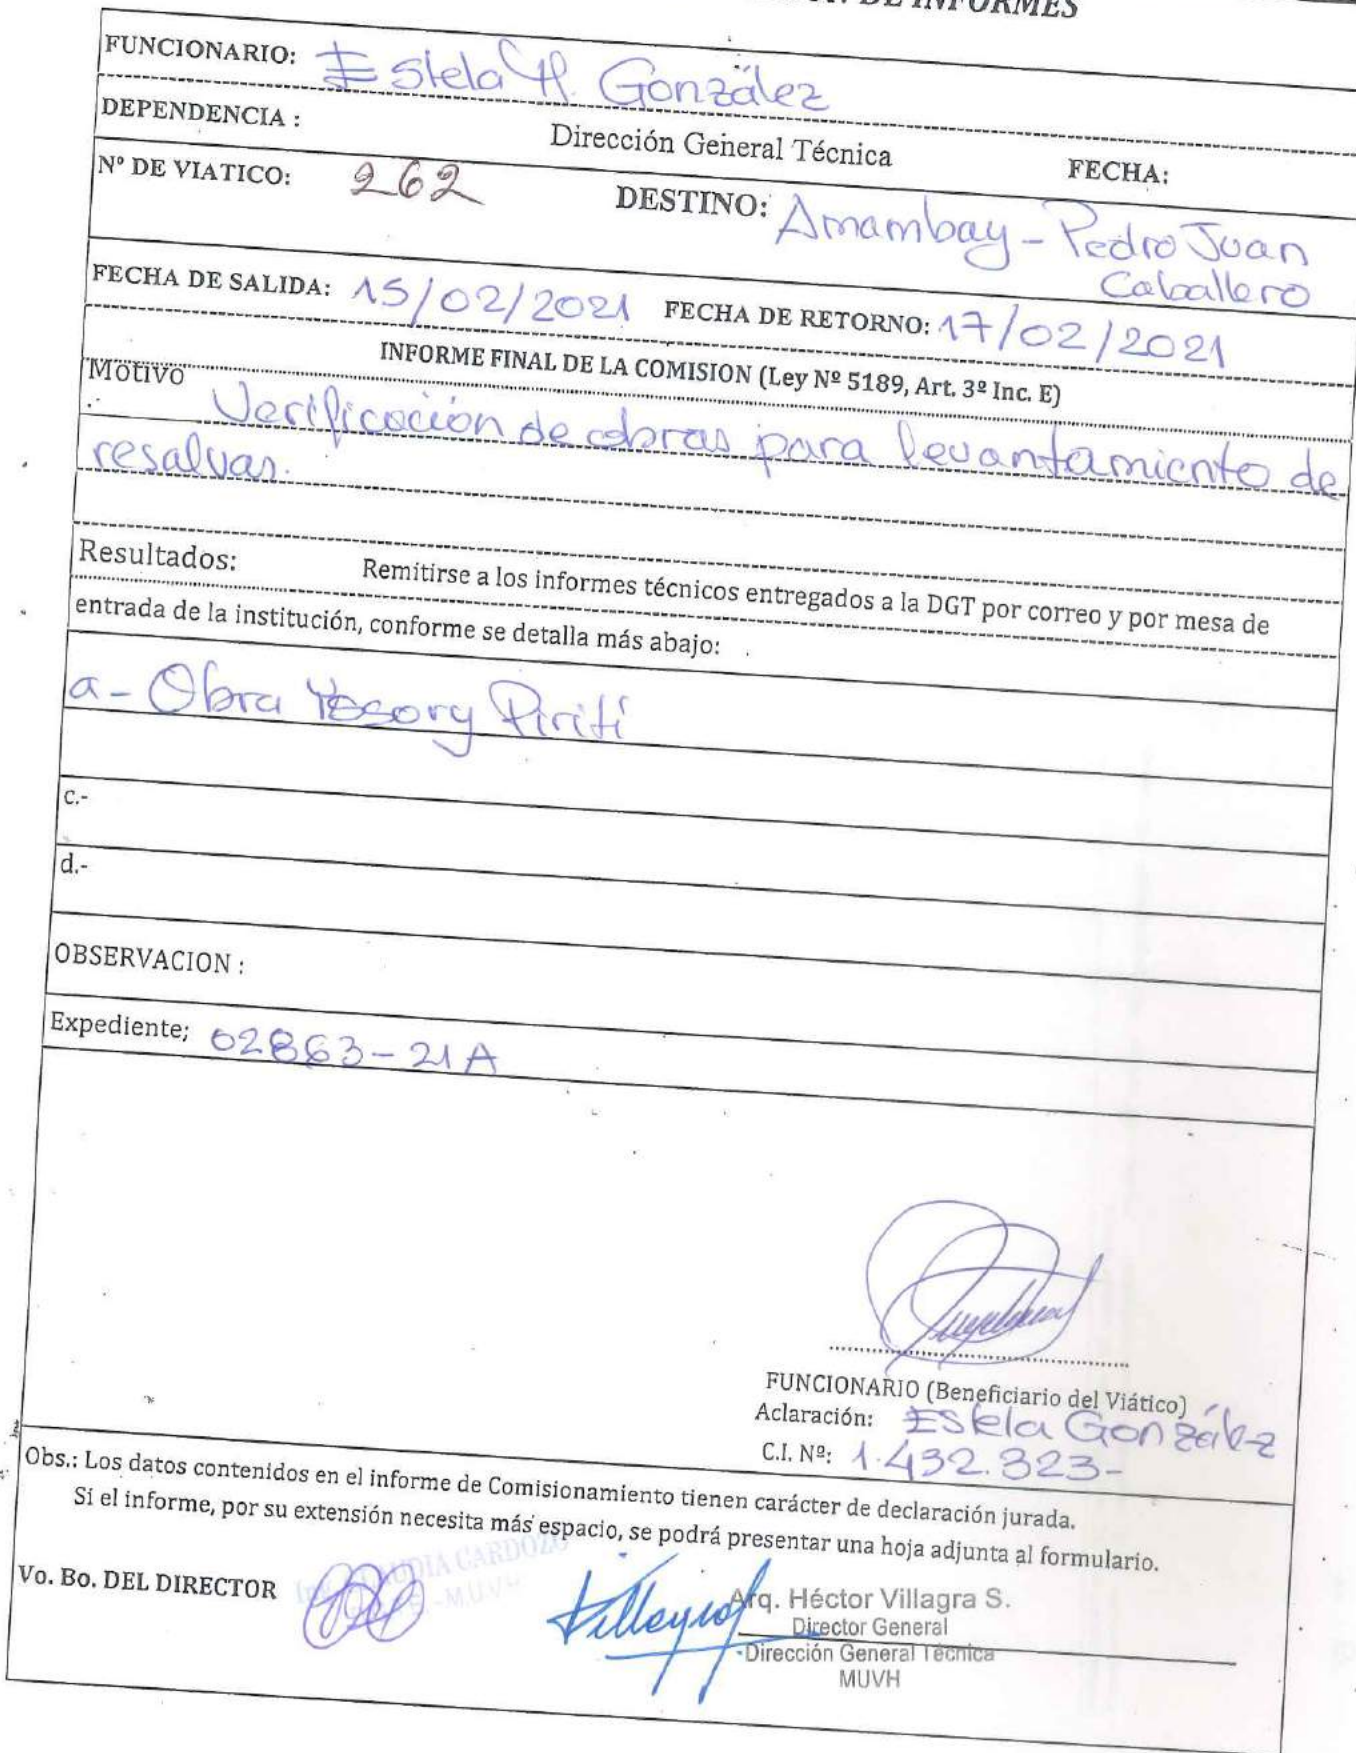 DE INFORMES
FUNCIONARIO: Estela H. González
DEPENDENCIA : Dirección General Técnica FECHA:
Nº DE VIATICO: 262 DESTINO: Amambay - Pedro Juan
Caballero
FECHA DE SALIDA: 15/02/2021 FECHA DE RETORNO: 17/02/2021
INFORME FINAL DE LA COMISION (Ley Nº 5189, Art. 3º Inc. E)
Motivo
Verificación de obras para levantamiento de
resalvas.
Resultados: Remitirse a los informes técnicos entregados a la DGT por correo y por mesa de
entrada de la institución, conforme se detalla más abajo:
a- Obra Piriti
c.-
d.-
OBSERVACION :
Expediente; 02863-21A
FUNCIONARIO (Beneficiario del Viático)
Aclaración: Estela González
C.I. Nº: 1.432.323-
Obs.: Los datos contenidos en el informe de Comisionamiento tienen carácter de declaración jurada.
Si el informe, por su extensión necesita más espacio, se podrá presentar una hoja adjunta al formulario.
CARDOZO
Vo. Bo. DEL DIRECTOR -MUVH
Arq. Héctor Villagra S.
Director General
Dirección General Técnica
MUVH